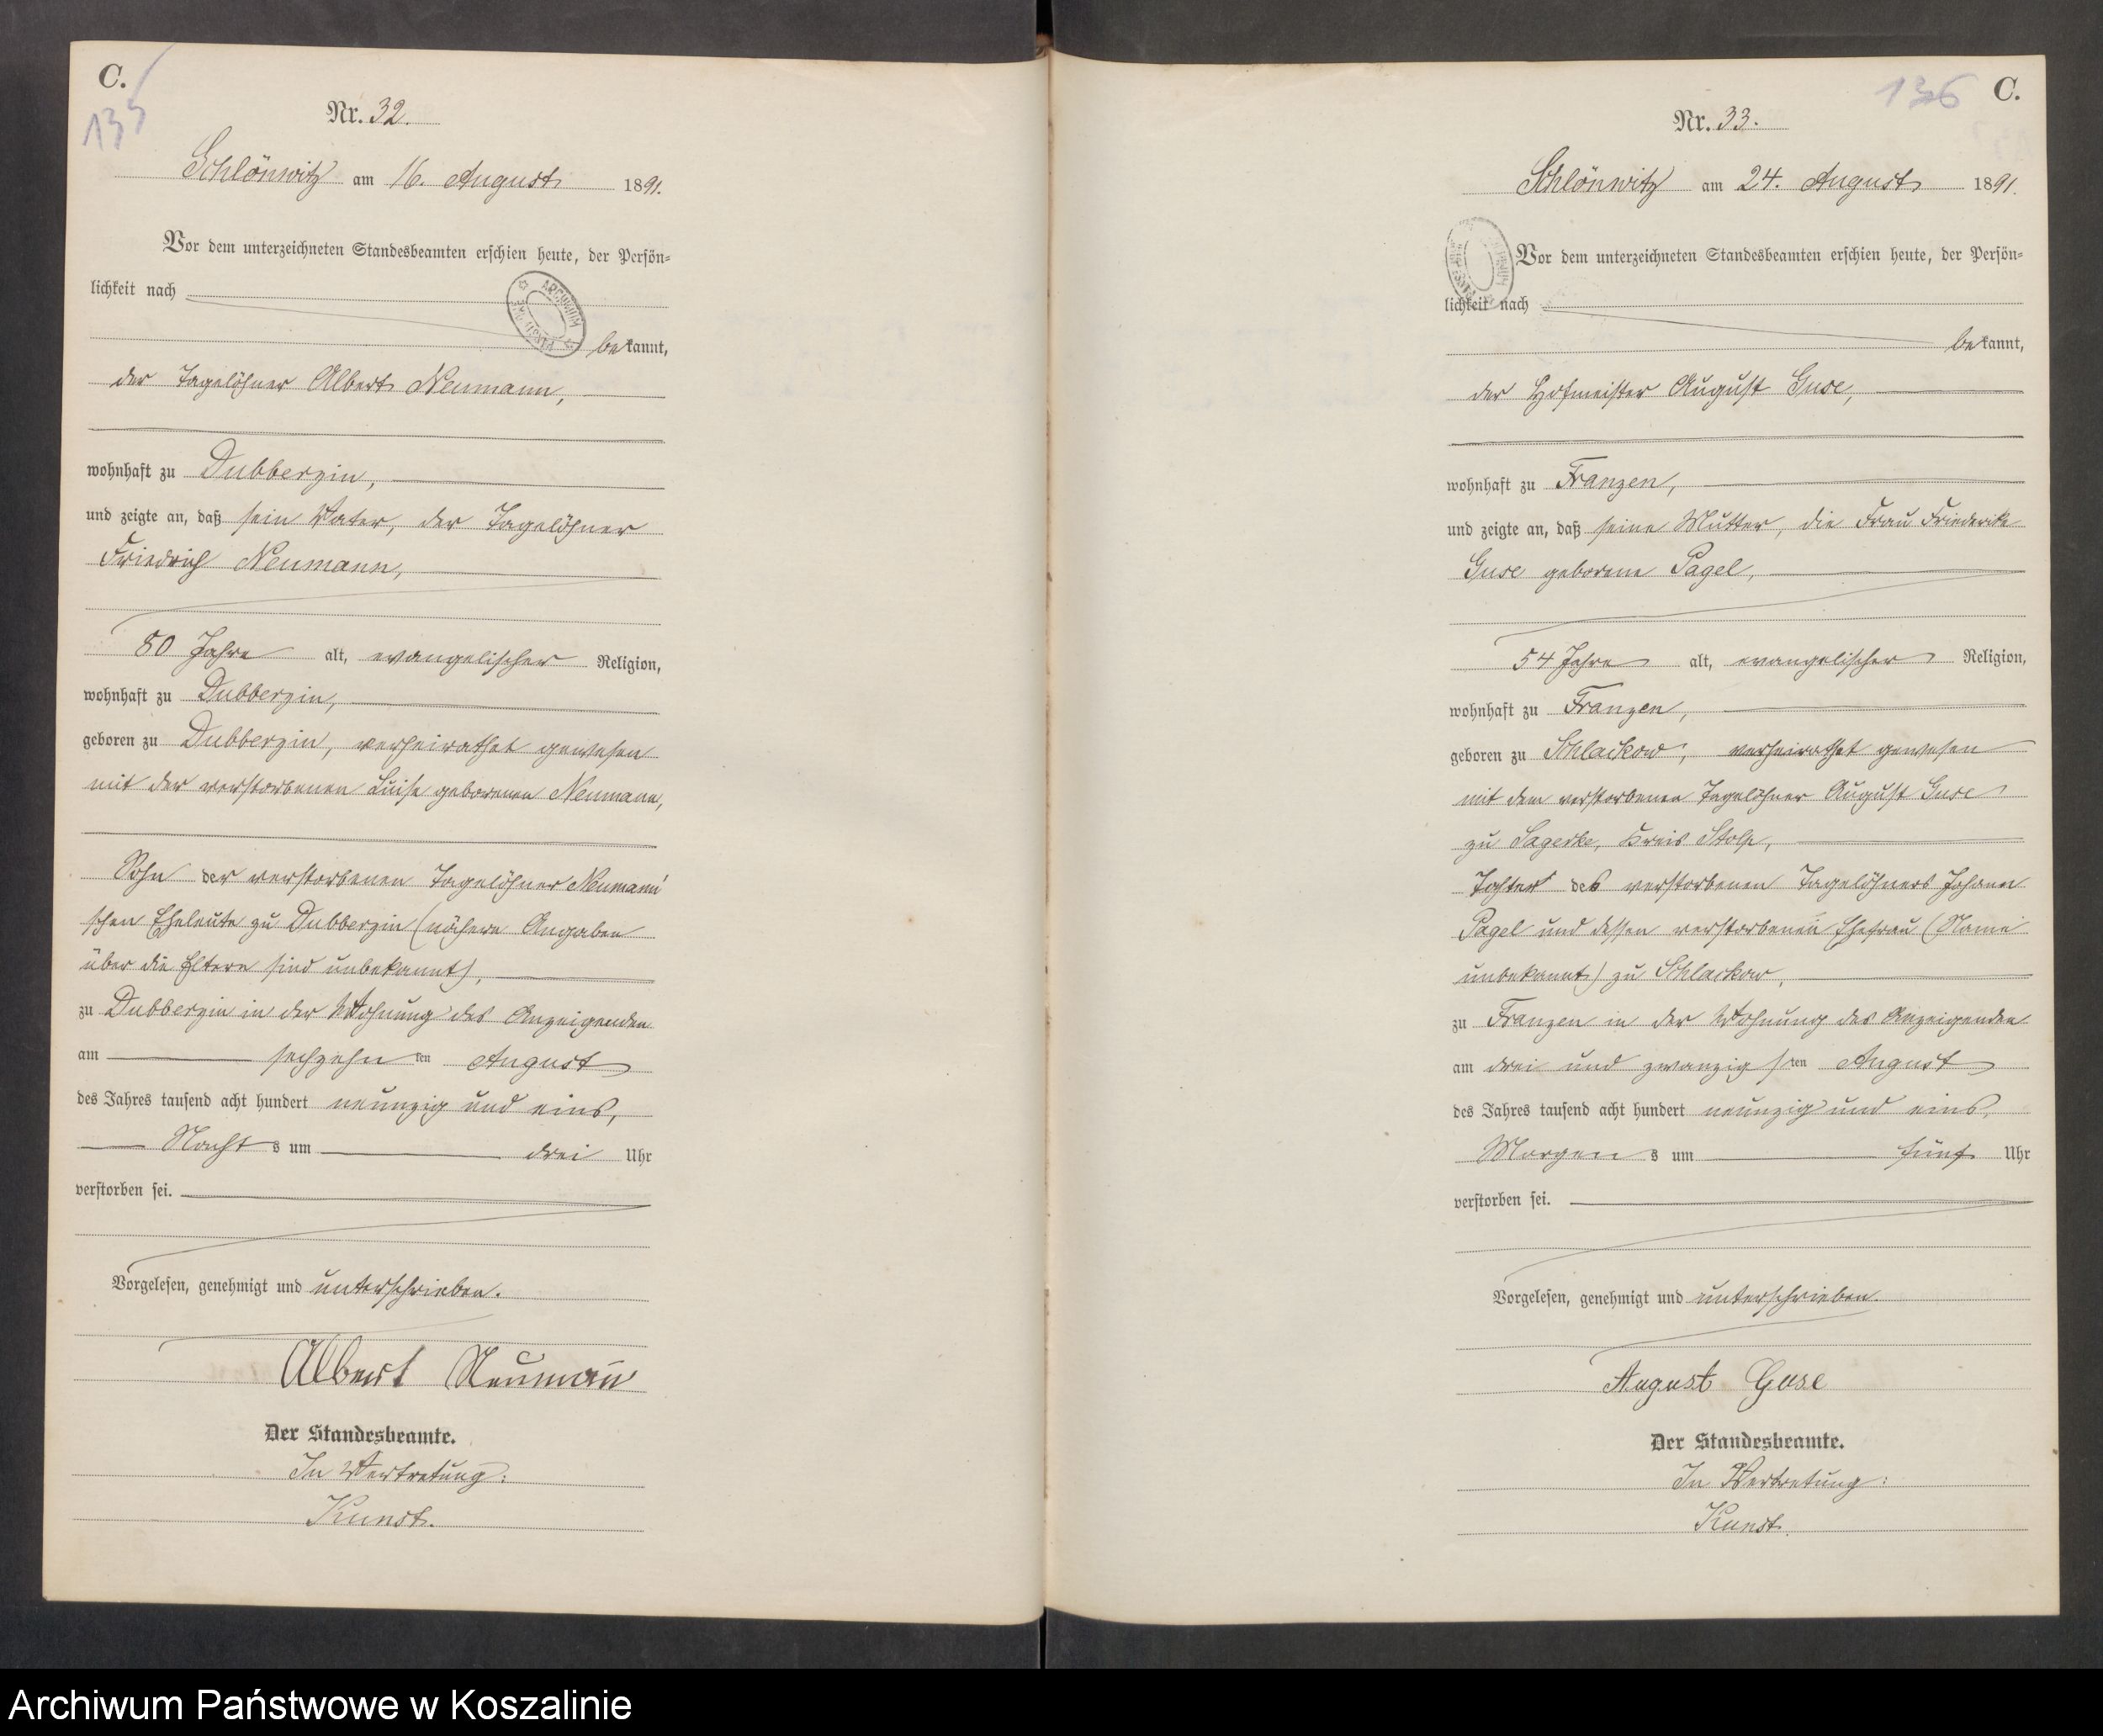 C.
135
Nr. 32.
Schlönwitz am 16. August 1891.
Vor dem unterzeichneten Standesbeamten erschien heute, der Persön-
lichkeit nach
ARCHIWUM
bekannt,
der Tagelöhner Albert Neumann,
wohnhaft zu Dubberzin,
und zeigte an, daß sein Vater, der Tagelöhner
Friedrich Neumann,
80 Jahre alt, evangelischer Religion,
wohnhaft zu Dubberzin,
geboren zu Dubberzin, verheirathet gewesen
mit der verstorbenen Luise geborenen Neumann,
Sohn der verstorbenen Tagelöhner Neumann'
schen Eheleute zu Dubberzin (nähere Angaben
über die Eltern sind unbekannt),
zu Dubberzin in der Wohnung des Anzeigenden
am sechzehnten August
des Jahres tausend acht hundert neunzig und eins,
Nachts um drei Uhr
verstorben sei.
Vorgelesen, genehmigt und unterschrieben.
Albert Neumann
Der Standesbeamte.
In Vertretung:
Kunst.
136
C.
Nr. 33.
Schlönwitz am 24. August 1891.
Vor dem unterzeichneten Standesbeamten erschien heute, der Persön-
lichkeit nach
bekannt,
der Hofmeister August Guse,
wohnhaft zu Franzen,
und zeigte an, daß seine Mutter, die Frau Friederike
Guse geborene Pagel,
54 Jahre alt, evangelischer Religion,
wohnhaft zu Franzen,
geboren zu Schlackow, verheirathet gewesen
mit dem verstorbenen Tagelöhner August Guse
zu Sagerke, Kreis Stolp,
Tochter des verstorbenen Tagelöhners Johann
Pagel und dessen verstorbenen Ehefrau (Name
unbekannt) zu Schlackow,
zu Franzen in der Wohnung des Anzeigenden
am drei und zwanzigsten August
des Jahres tausend acht hundert neunzig und eins,
Morgens um fünf Uhr
verstorben sei.
Vorgelesen, genehmigt und unterschrieben.
August Guse
Der Standesbeamte.
In Vertretung:
Kunst.
Archiwum Państwowe w Koszalinie